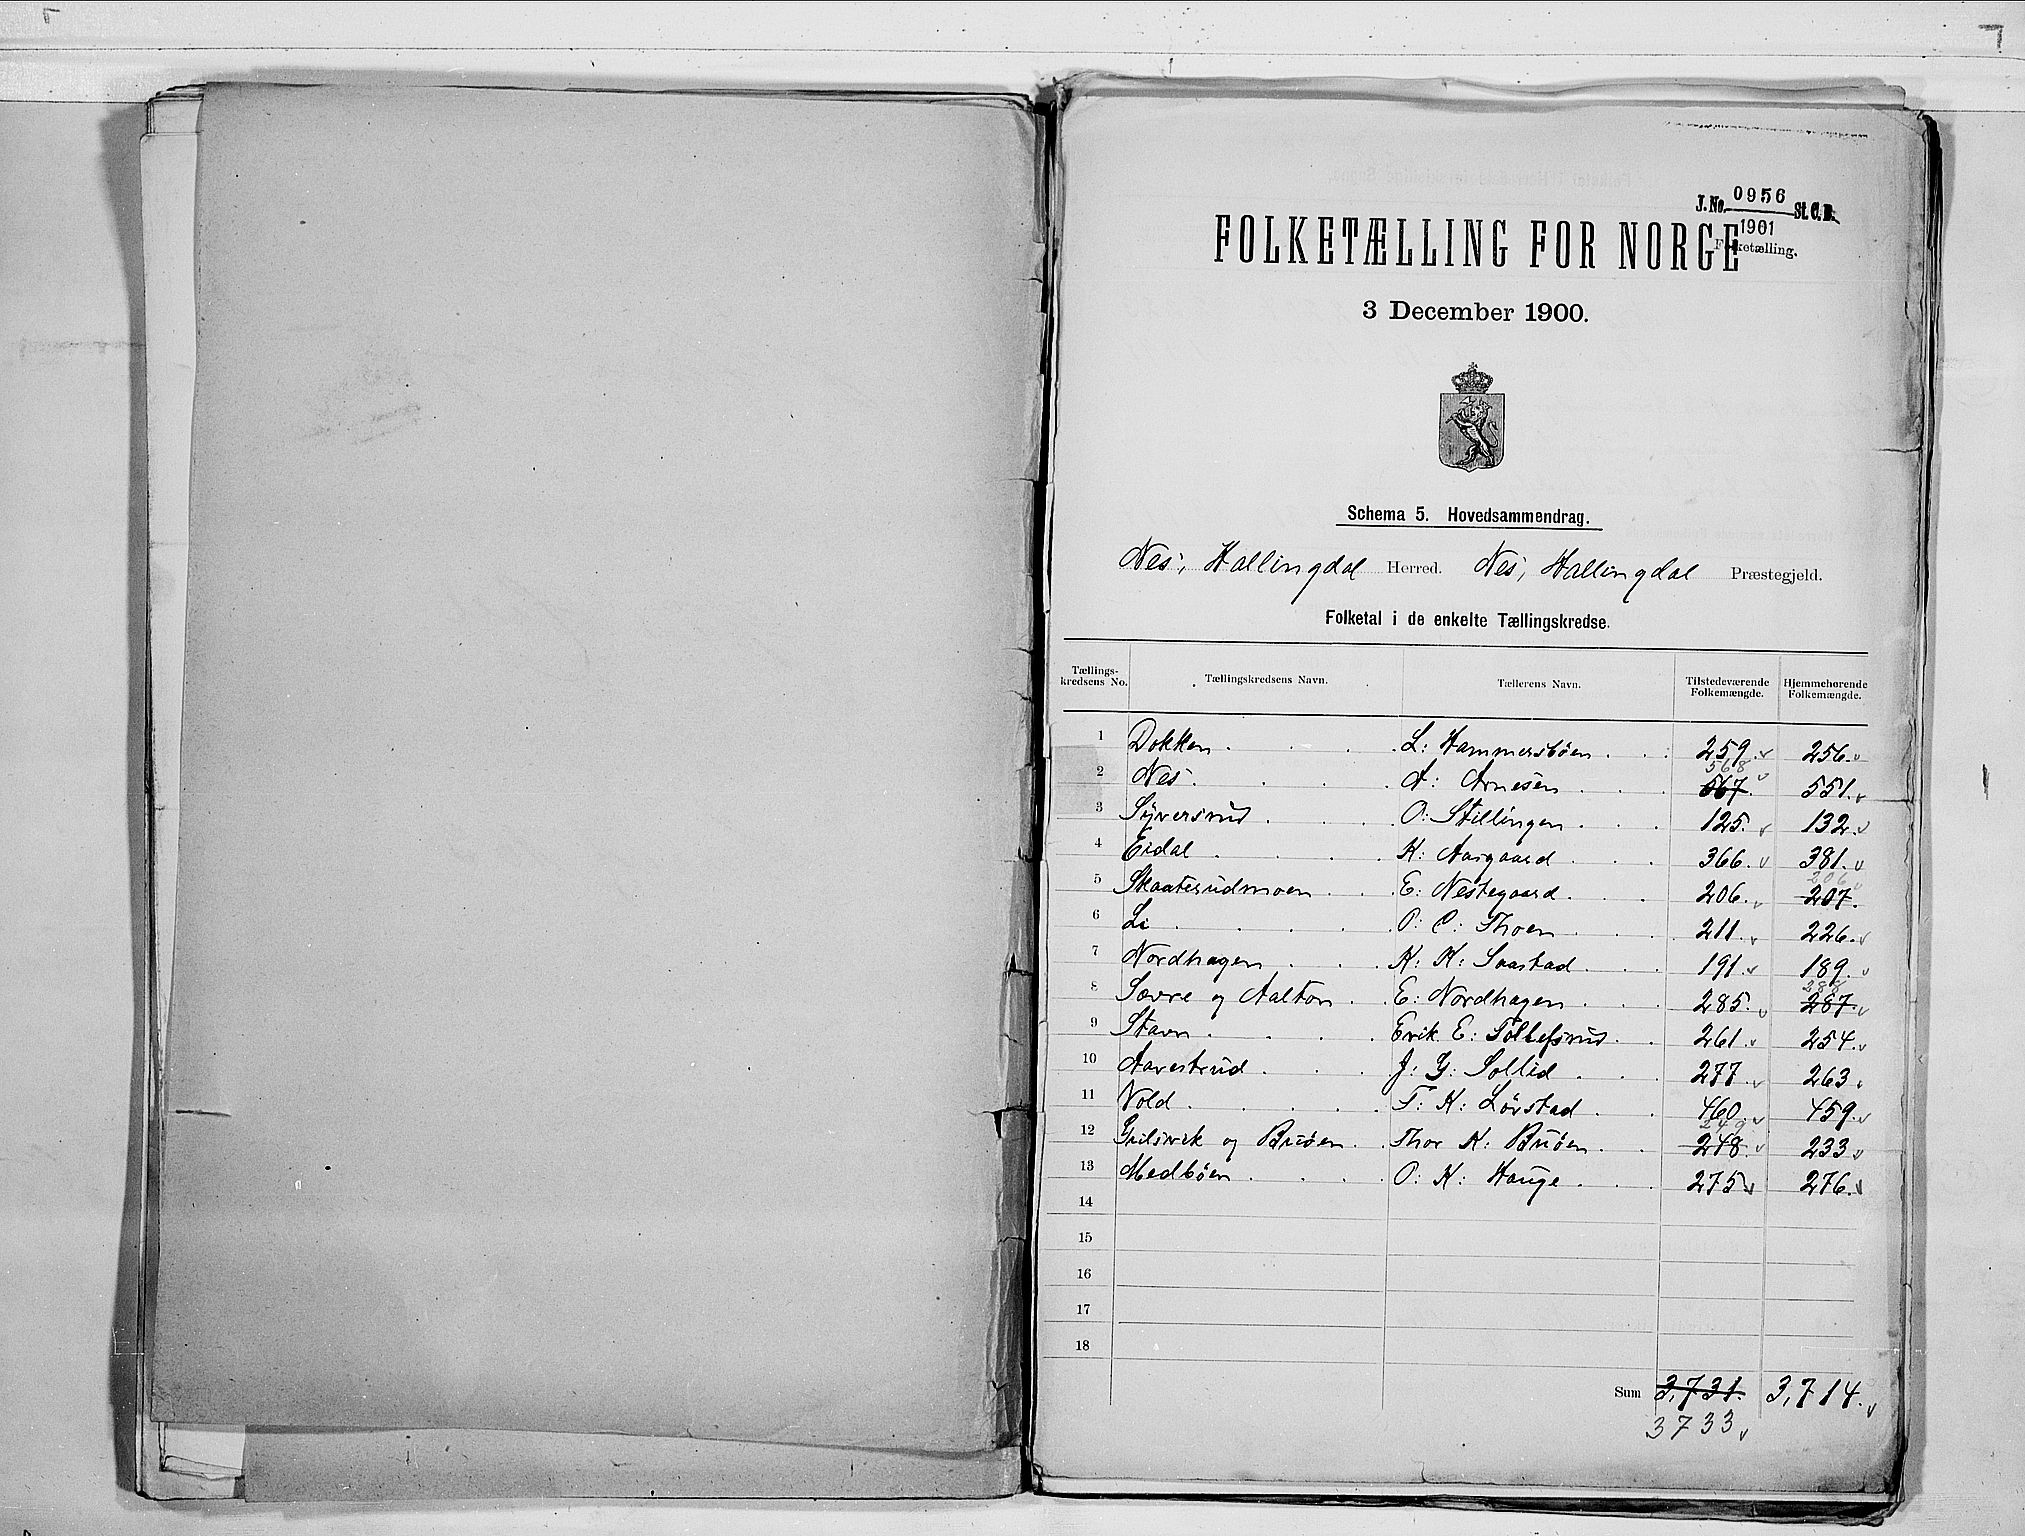 J. No. 0956 St. C. B.
1901
Folketælling.
FOLKETÆLLING FOR NORGE
3 December 1900.
Schema 5. Hovedsammendrag.
Nes, Hallingdal Herred. Nes, Hallingdal Præstegjeld.
Folketal i de enkelte Tællingskredse.
Tællings-kredsens No. Tællingskredsens Navn. Tællerens Navn. Tilstedeværende Folkemængde. Hjemmehørende Folkemængde.
1 Dokken L: Hammersbøen 259. 256.
568
2 Nes A: Arnesen 567. 551.
3 Syversrud O: Stillingen 125. 132.
4 Eidal K: Aasgaard 366. 381.
206
5 Skaaterudmoen E: Nestegaard 206. 207.
6 Li O: C: Thoen 211. 226.
7 Nordhagen K: K: Saastad 191. 189.
288
8 Sævre og Aalton E: Nordhagen 285. 287.
9 Stavn Erik E: Tollefsrud 261. 254.
10 Aavestrud J: G: Sollid 277. 263.
11 Vold T: K: Lørstad 460. 459.
249
12 Gulsvik og Bruøen Thor K: Bruøen 248. 233.
13 Medbøen O: K: Hauge 275. 276.
14
15
16
17
18
Sum 3,731. 3,714.
3733